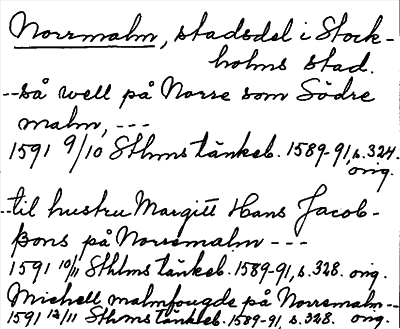 Norrmalm, stadsdel i Stock-
holms stad.
--så well på Norre som Södre
malm, ---
1591 9/10 Sthms tänkeb. 1589-91, s. 324.
orig.
--til hustru Margitt Hans Jacob-
ßons på Norremalm ---
1591 10/11 Sthlms tänkeb. 1589-91, s. 328. orig.
Michell malmfougde på Norremalm--
1591 12/11 Sthms tänkeb. 1589-91, s. 328. orig.